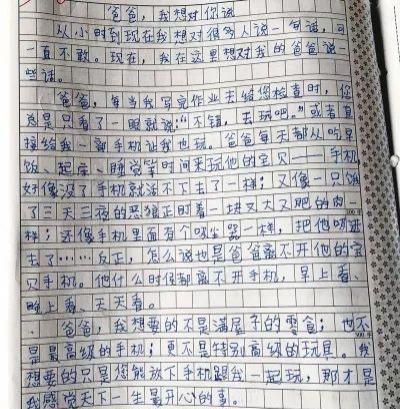 爸爸，我想对你说
从小时到现在我想对很多人说一句话，可一
直不敢。现在，我在这里想对我的爸爸说一
些话。
爸爸，每当我写完作业去给您检查时，你
总是只看了一眼就说：“不错，去玩吧。”或者直
接给我一部手机让我也玩。爸爸每天都从吃早
饭、起床、睡觉等时间来玩他的宝贝——手机
好像没了手机就活不下去了一样；又像一只饿
了三天三夜的恶狼正盯着一块又大又肥的肉一
样；还像手机里面有个吸尘器一样，把他吸进
去了……反正，怎么说也是爸爸离不开他的宝
贝手机。他什么时候都离不开手机，早上看、
晚上看、天天看。
爸爸，我想要的不是满屋子的零食；也不
是最高级的手机；更不是特别高级的玩具。我
想要的只是您能放下手机跟我一起玩，那才是
我感觉天下一生最开心的事。